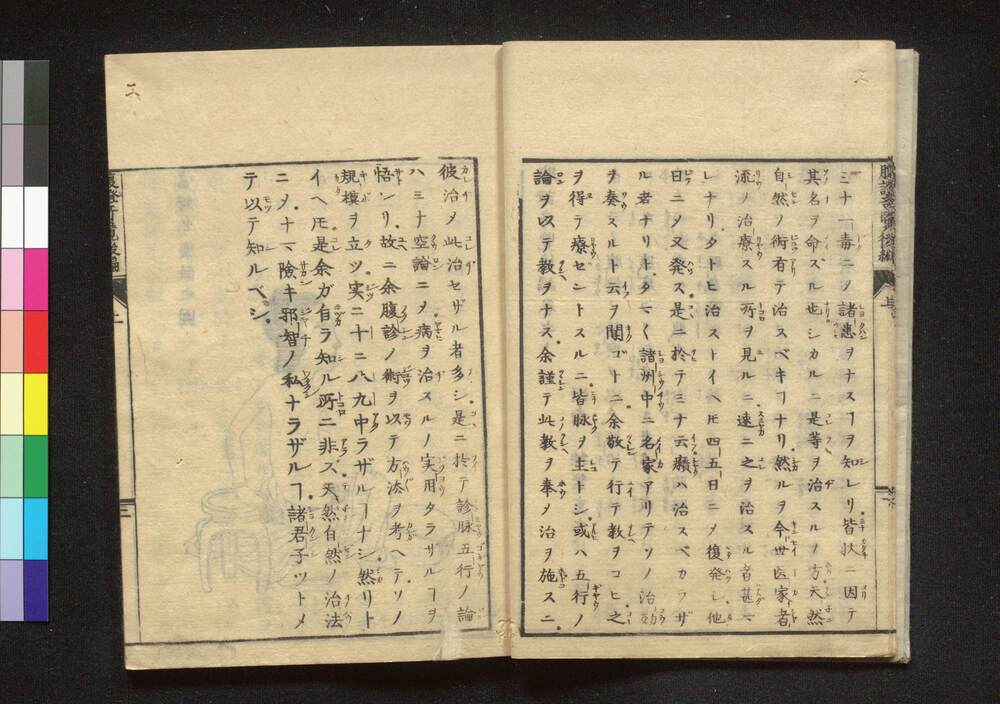 ミナ一毒ニノ諸患ヲナスヿヲ知レリ皆状ニ因テ
其名ヲ命ズル也シカルニ是等ヲ治スルノ方天然
自然ノ術有テ治スベキヿナリ然ルヲ今世医家者
流ノ治療スル所ヲ見ルニ速ニ之ヲ治スル者甚
レナリタトヒ治ストイヘ𪜈四五日ニメ復発シ他
日ニメ又発ス是ニ於テミナ云癪ハ治スベカラザ
ル者ナリト タマ〱諸州中ニ名家アリテソノ治効
ヲ奏スルト云ヲ聞ゴトニ余敬テ行テ教ヲコヒ之
ヲ得テ療セントスルニ皆脉ヲ主トシ或ハ五行ノ
論ヲ以テ教ヲナス余謹テ此教ヲ奉メ治ヲ施スニ
彼治メ此治セザル者多シ是ニ於テ診脉五行ノ論
ハミナ空論ニメ病ヲ治スルノ実用タラザルヿヲ
悟レリ故ニ余腹診ノ術ヲ以テ方法ヲ考ヘテソノ
規模ヲ立ツ実ニ十ニ八九中ラザルヿナシ然リト
イヘ𪜈是余ガ自ラ知ル所ニ非ズ天然自然ノ治法
ニノナ險キ邪智ノ私ナラザルヿ諸君子ツトメ
テ以テ知ルベシ